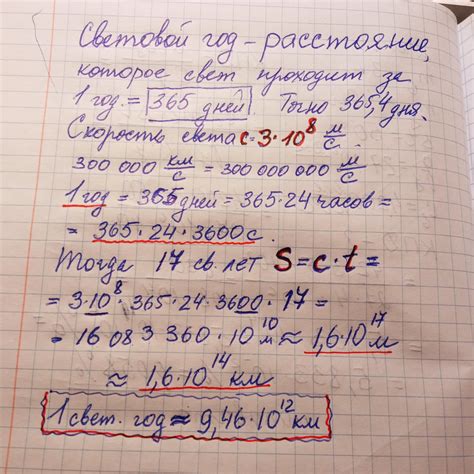 Световой год - расстояние,
которое свет проходит за
1 год. = 365 дней. Точно 365,4 дня.
Скорость света c=3·10⁸ м/с.
300 000 км/с = 300 000 000 м/с
1 год = 365 дней = 365·24 часов =
= 365·24·3600 с.
Тогда 17 св. лет S=c·t=
= 3·10⁸·365·24·3600·17=
= 16 083 360·10¹⁰ м ≈ 1,6·10¹⁷ м
≈ 1,6·10¹⁴ км
1 свет. год ≈ 9,46·10¹² км